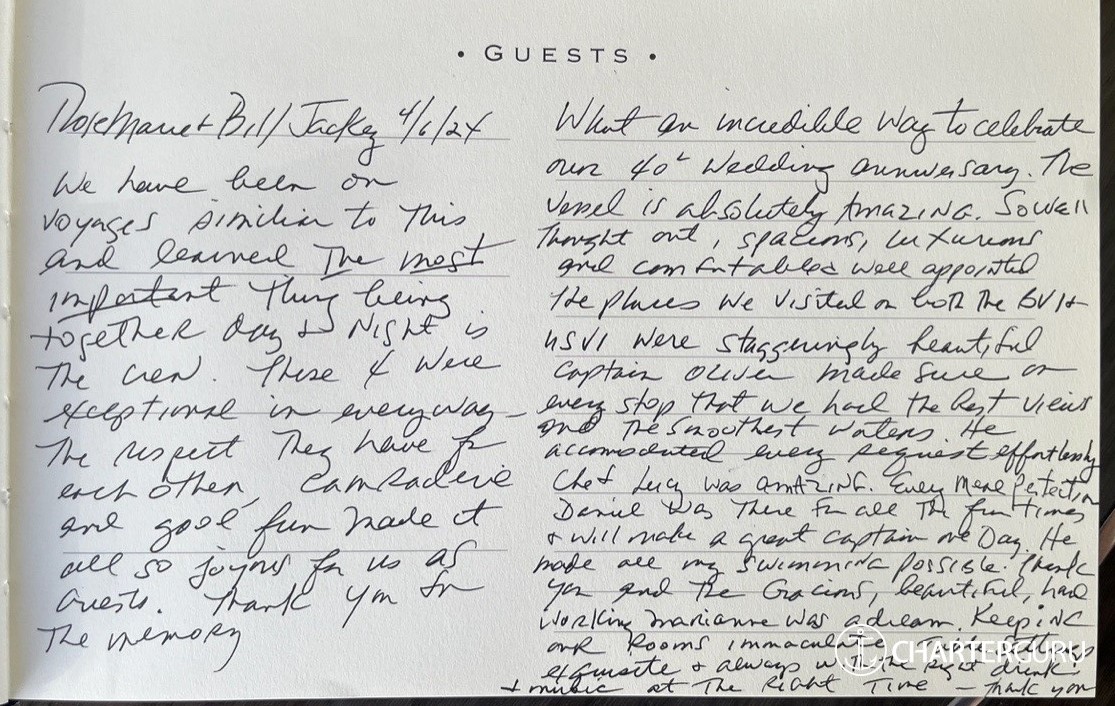 • GUESTS •
Rosemarie + Bill Jackey 4/6/24
We have been on
voyages similiar to This
and learned The most
important Thing being
together Day & Night is
The crew. These 4 were
exceptional in everyway –
The respect They have for
each other, camraderie
and good fun made it
all so joyous for us as
Guests. Thank you for
The memory
What an incredible way to celebrate
our 40th Wedding anniversary. The
vessel is absolutely AmAZING. So well
Thought out, spacious, luxurious
and comfortable & well appointed
The places we visited on both The BVI +
USVI were staggeringly beautiful
Captain Oliver made sure on
every stop That we had The best views
and The smoothest waters. He
accomodated every request effortlessly
Chef Lucy was amAZING. Every meal perfection
Daniel was There for all The fun Times
+ will make a great captain one Day. He
made all my swimming possible. Thank
you and The Gracious, beautiful, hard
working Marianne was a dream. Keeping
our Rooms immaculate
exquisite + always with The Right drink
+ music at The Right Time – Thank you
CHARTERGURU